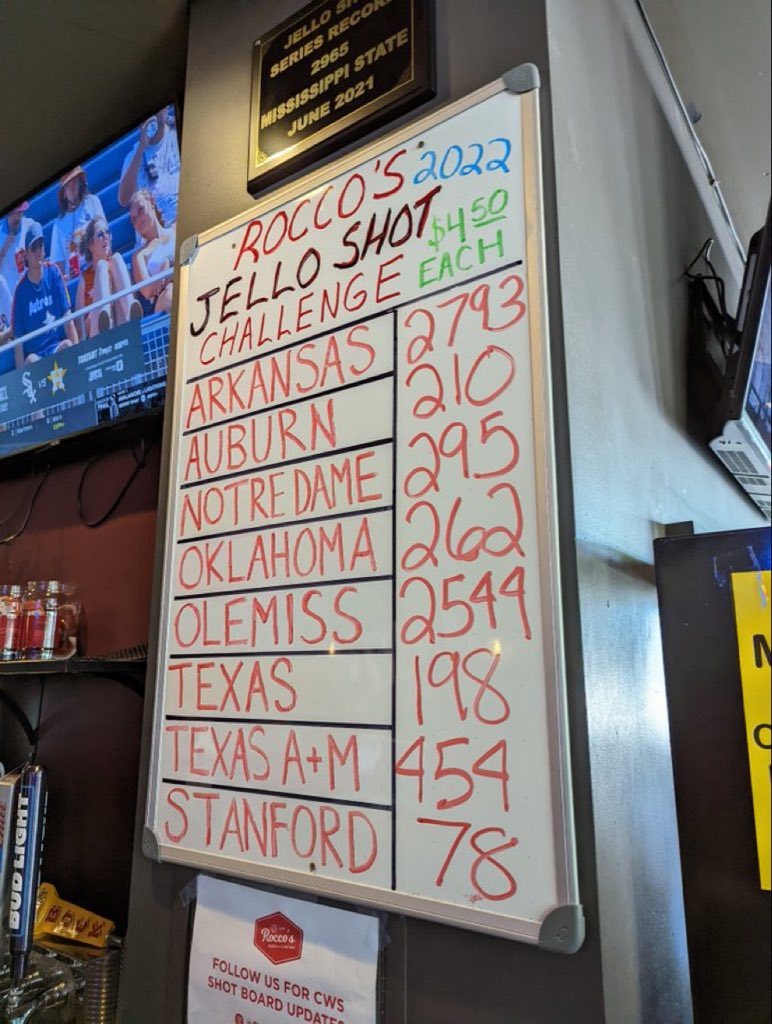 JELLO SH
SERIES RECOR
2965
MISSISSIPPI STATE
JUNE 2021
ROCCO'S 2022
JELLO SHOT $4.50
CHALLENGE EACH
ARKANSAS 2793
AUBURN 210
NOTRE DAME 295
OKLAHOMA 262
OLE MISS 2544
TEXAS 198
TEXAS A+M 454
STANFORD 78
Rocco's
FOLLOW US FOR CWS
SHOT BOARD UPDATES
BUD LIGHT
Astros
VS